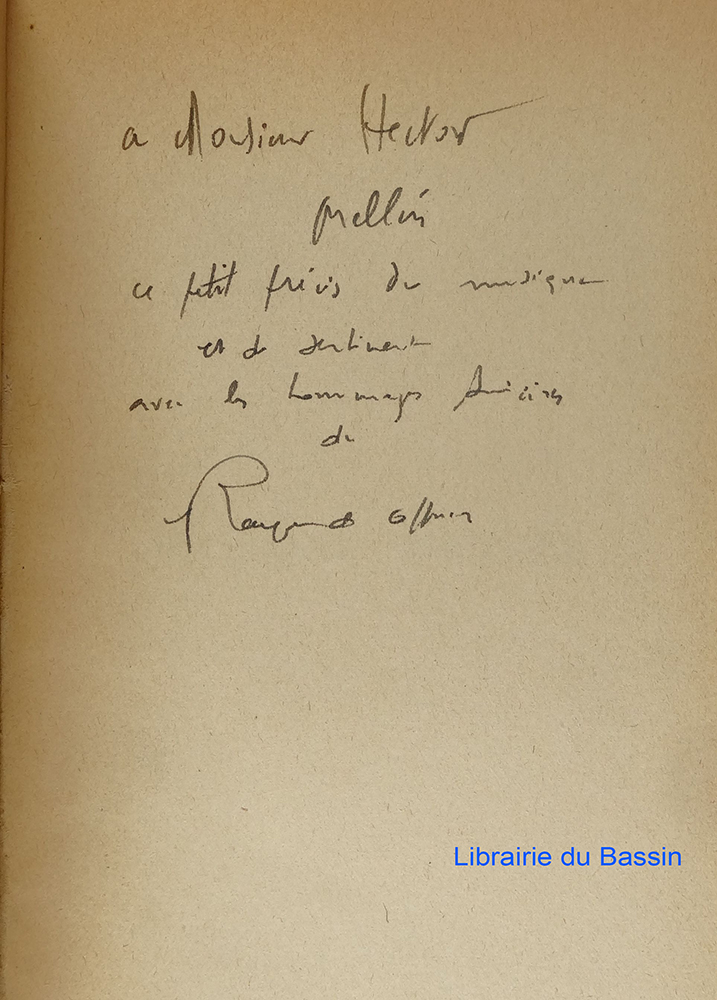 a Monsieur Hector
ce petit précis de musique
et de sentiment
avec les hommages sincères
de
Raymond Offner
Librairie du Bassin